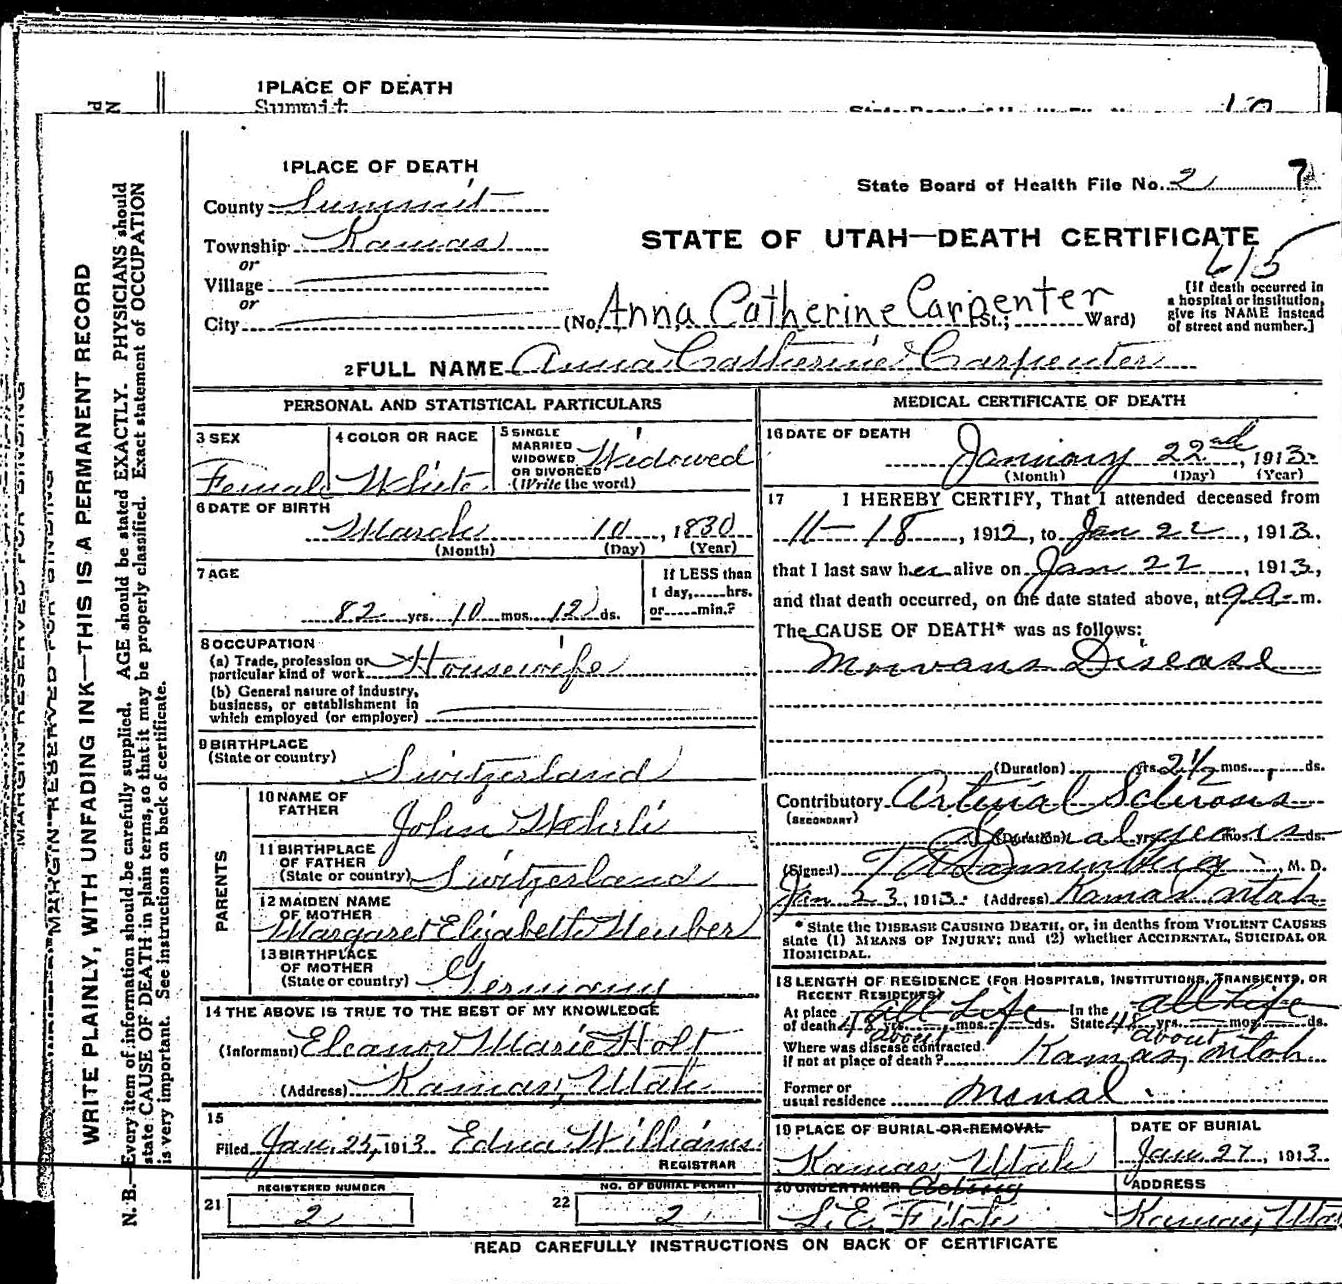 1 PLACE OF DEATH
Summit
State Board of Health File No.
1 PLACE OF DEATH
State Board of Health File No. 2 7
County Summit
Township Kamas
or
Village
or
City
STATE OF UTAH—DEATH CERTIFICATE
615
[If death occurred in
a hospital or institution,
give its NAME instead
of street and number.]
(No. Anna Catherine Carpenter St.; Ward)
2 FULL NAME Anna Catherine Carpenter
PERSONAL AND STATISTICAL PARTICULARS
3 SEX
Female
4 COLOR OR RACE
White
5 SINGLE
MARRIED
WIDOWED
OR DIVORCED
(Write the word)
Widowed
6 DATE OF BIRTH
March 10, 1830
(Month) (Day) (Year)
7 AGE
82 yrs. 10 mos. 12 ds.
If LESS than
1 day,.....hrs.
or.....min.?
8 OCCUPATION
(a) Trade, profession or
particular kind of work Housewife
(b) General nature of industry,
business, or establishment in
which employed (or employer)
9 BIRTHPLACE
(State or country)
Switzerland
PARENTS
10 NAME OF
FATHER
John Wehrli
11 BIRTHPLACE
OF FATHER
(State or country) Switzerland
12 MAIDEN NAME
OF MOTHER
Margaret Elizabeth
13 BIRTHPLACE
OF MOTHER
(State or country) Germany
14 THE ABOVE IS TRUE TO THE BEST OF MY KNOWLEDGE
(Informant) Eleanor Marie Holt
(Address) Kamas, Utah
15
Filed Jan. 25, 1913. Edna Williams
REGISTRAR
21
REGISTERED NUMBER
2
22
NO. OF BURIAL PERMIT
2
MEDICAL CERTIFICATE OF DEATH
16 DATE OF DEATH
January 22nd, 1913.
(Month) (Day) (Year)
17 I HEREBY CERTIFY, That I attended deceased from
11-18, 1912, to Jan 22, 1913,
that I last saw her alive on Jan 22, 1913,
and that death occurred, on the date stated above, at 9 A. m.
The CAUSE OF DEATH* was as follows:
Morvans Disease
(Duration) yrs. 2 1/2 mos. ds.
Contributory Arterial Sclerosis
(SECONDARY)
(Duration) Several years yrs. mos. ds.
(Signed) M. D.
Jan 23, 1913. (Address) Kamas Utah
* State the DISEASE CAUSING DEATH, or, in deaths from VIOLENT CAUSES
state (1) MEANS OF INJURY; and (2) whether ACCIDENTAL, SUICIDAL OR
HOMICIDAL.
18 LENGTH OF RESIDENCE (FOR HOSPITALS, INSTITUTIONS, TRANSIENTS, OR
RECENT RESIDENTS)
At place all life In the all life
of death 48 yrs. mos. ds. State 48 yrs. mos. ds.
about about
Where was disease contracted,
if not at place of death? Kamas, Utah
Former or
usual residence
19 PLACE OF BURIAL OR REMOVAL
Kamas, Utah
DATE OF BURIAL
Jan. 27, 1913
20 UNDERTAKER Acting
ADDRESS
Kamas, Utah
READ CAREFULLY INSTRUCTIONS ON BACK OF CERTIFICATE
MARGIN RESERVED FOR BINDING
WRITE PLAINLY, WITH UNFADING INK—THIS IS A PERMANENT RECORD
N. B.—Every item of information should be carefully supplied. AGE should be stated EXACTLY. PHYSICIANS should
state CAUSE OF DEATH in plain terms, so that it may be properly classified. Exact statement of OCCUPATION
is very important. See instructions on back of certificate.